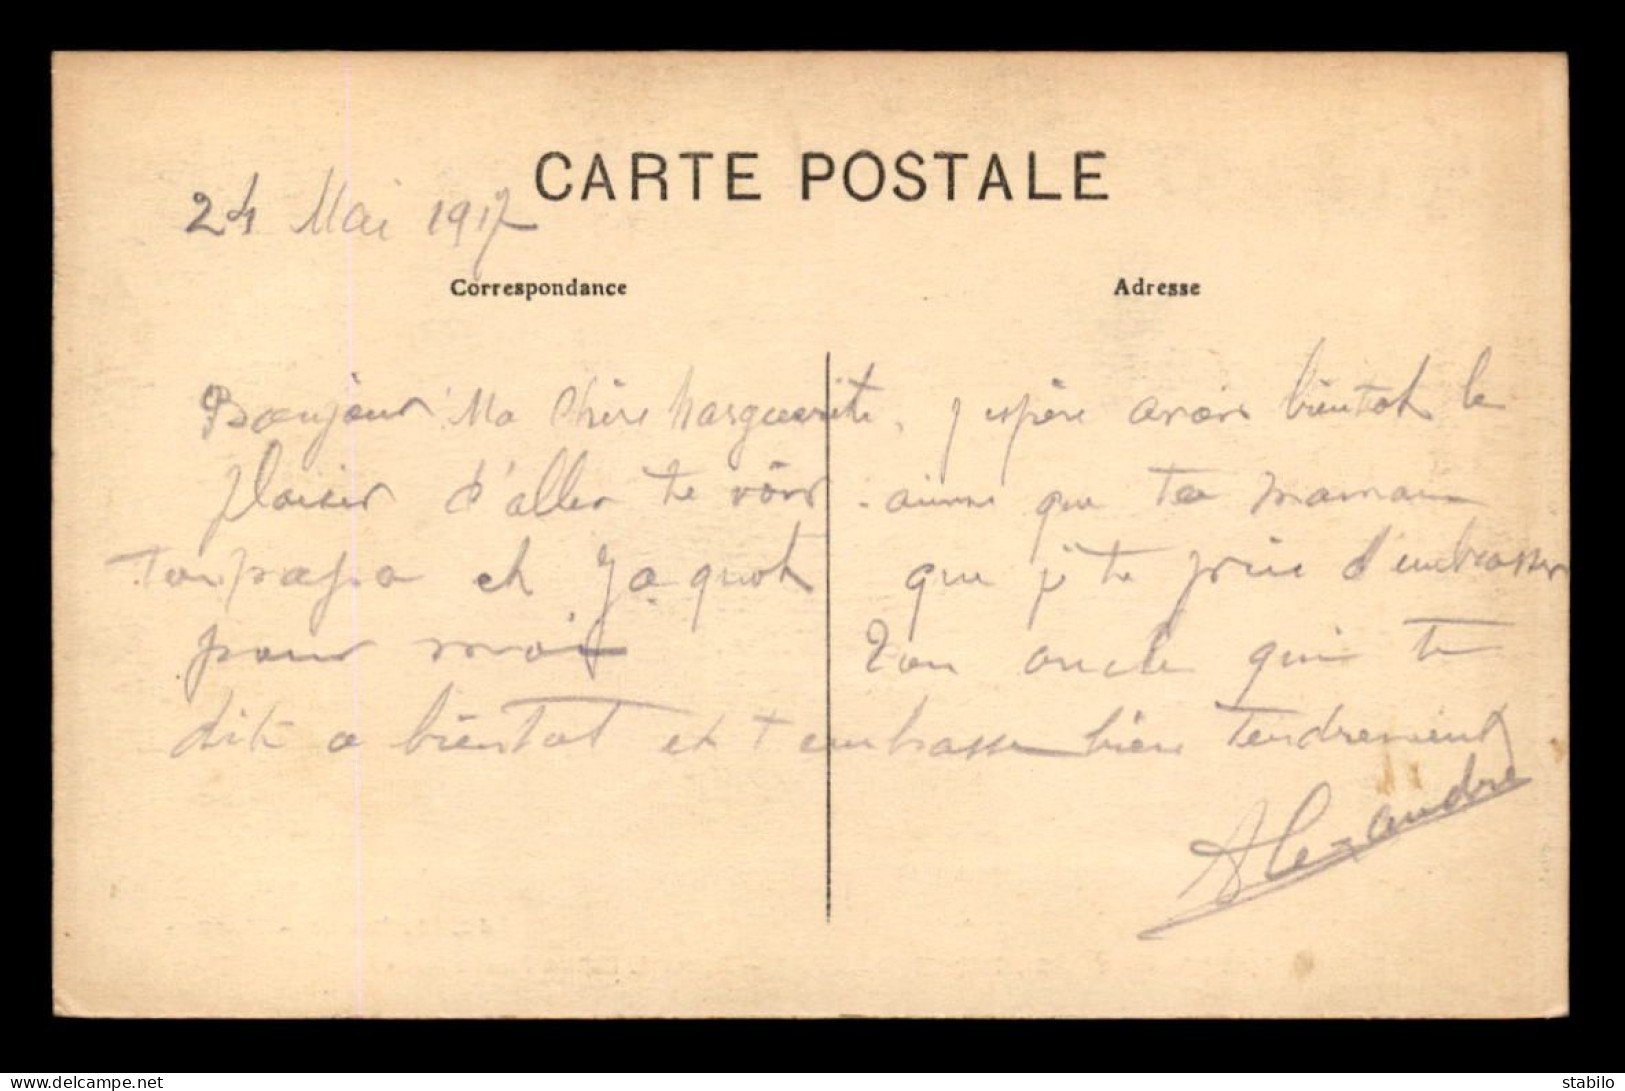 CARTE POSTALE
24 Mai 1917
Correspondance
Adresse
Bonjour Ma Chère Marguerite, j espère avoir bientot le
plaisir d'aller te voir. ainsi que ta maman
ton papa et Jaquot que j'te prie d'embrasser
pour moi Ton oncle qui te
dit a bientot et t embrasse bien tendrement
Alexandre
www.delcampe.net
stabilo